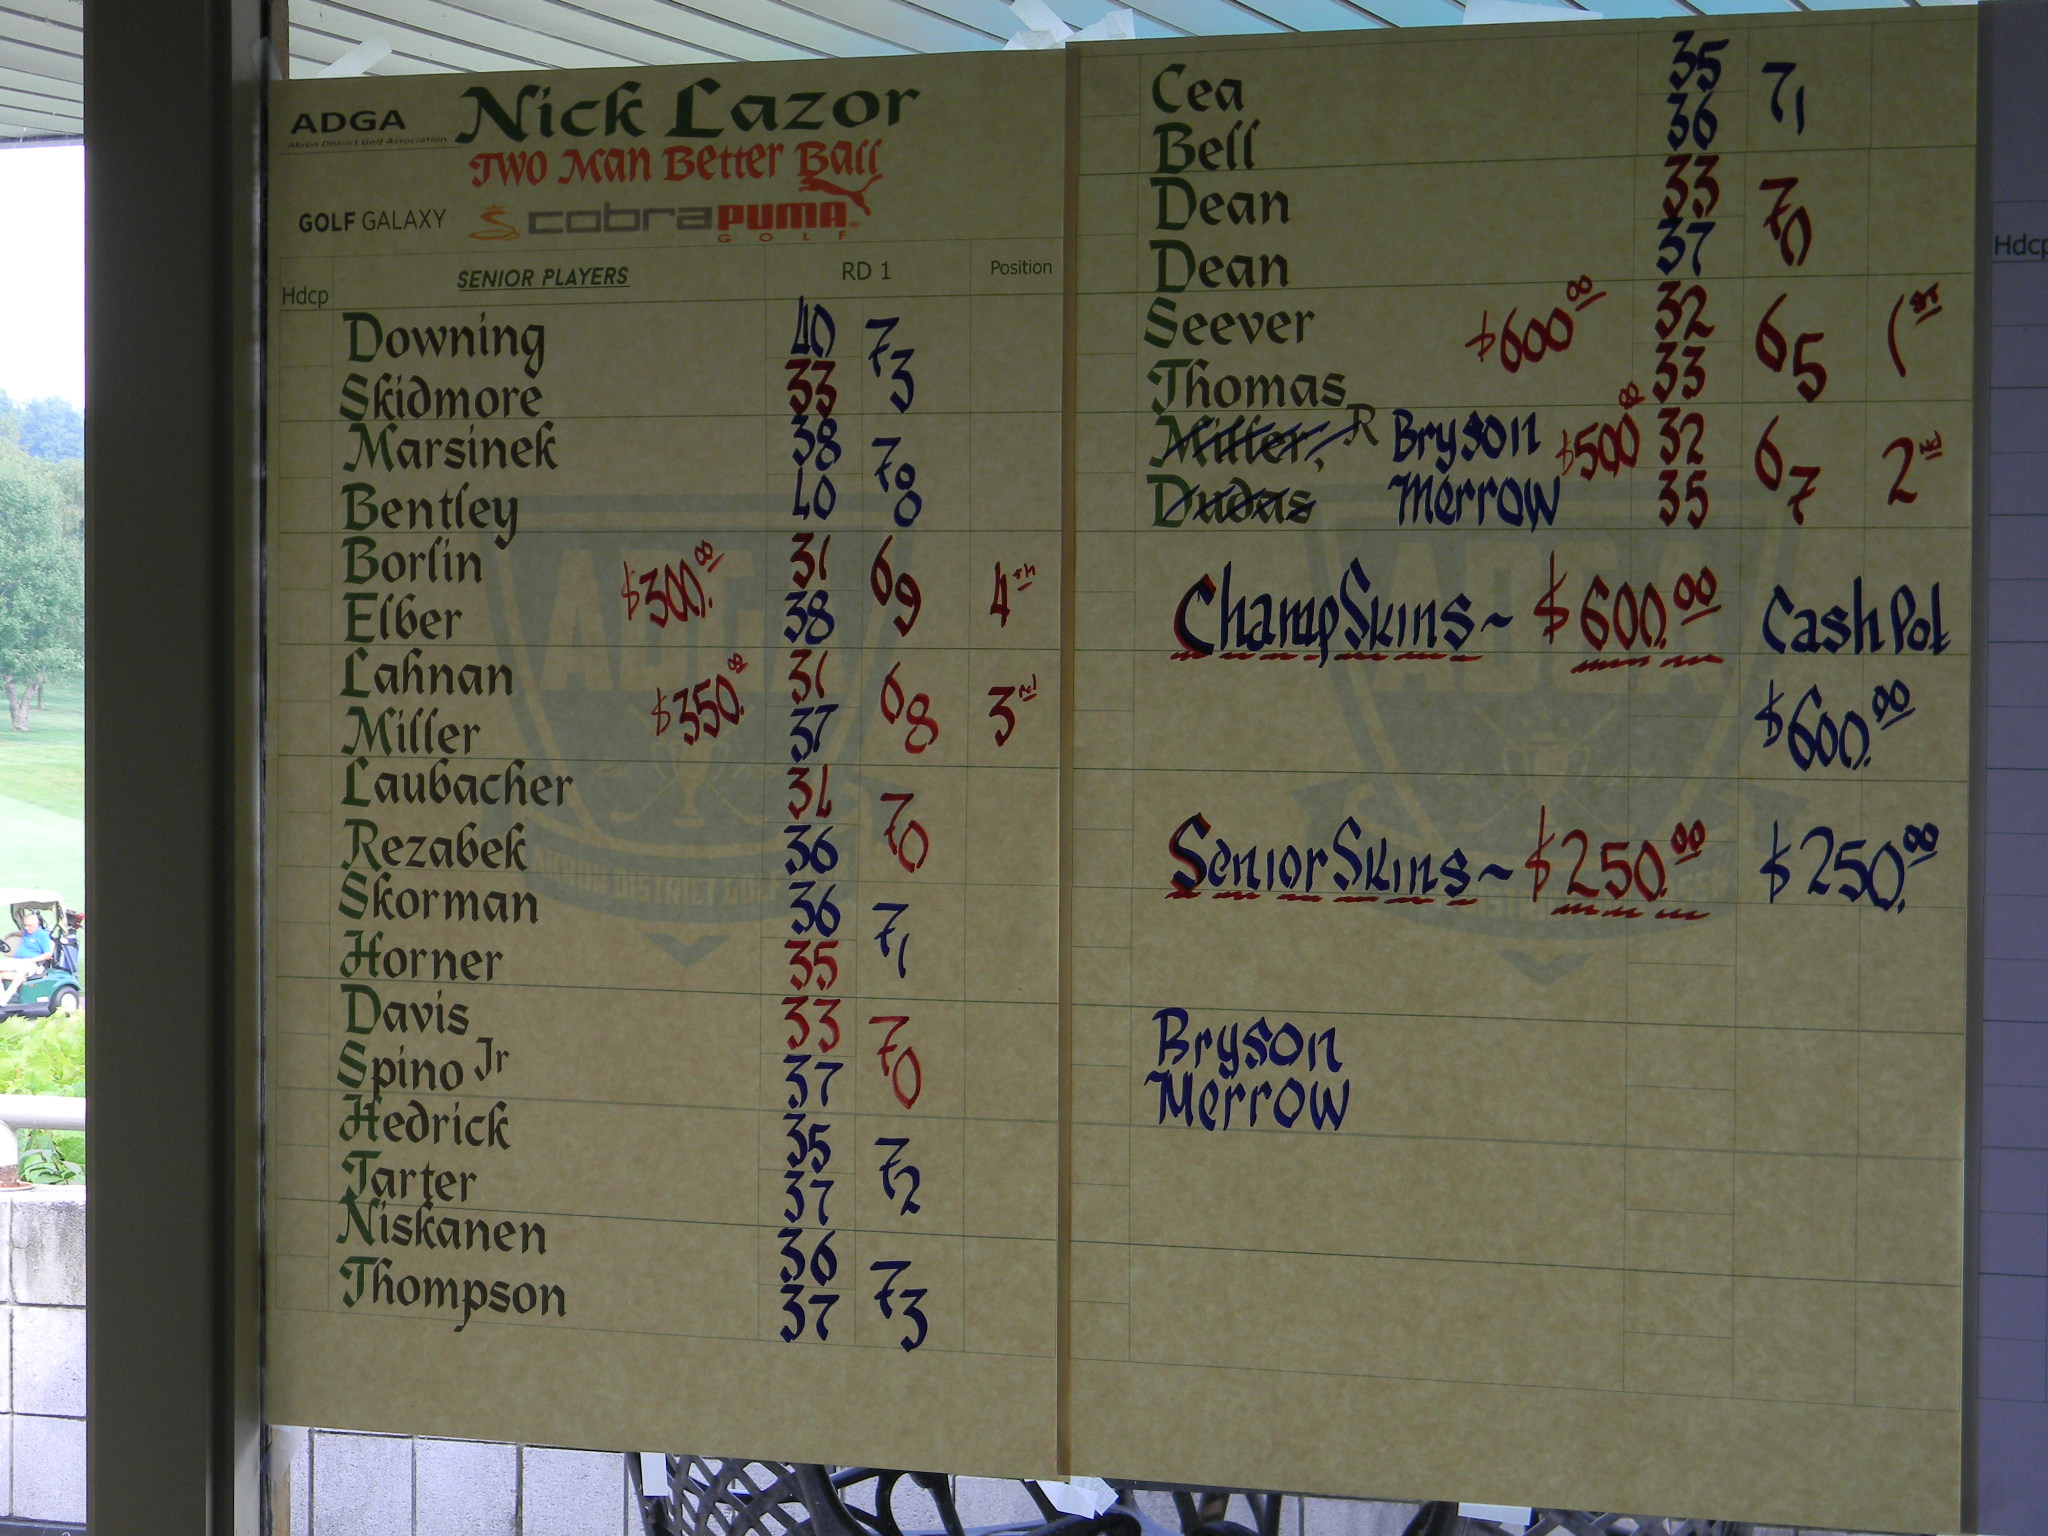 ADGA
Akron District Golf Association
Nick Lazor
Two Man Better Ball
GOLF GALAXY
cobra PUMA
GOLF
Hdcp SENIOR PLAYERS RD 1 Position
Downing 40 73
Skidmore 33
Marsinek 38 78
Bentley 40
Borlin $300.00 31 69 4th
Elber 38
Lahnan $350.00 31 68 3rd
Miller 37
Laubacher 31 70
Rezabek 36
Skorman 36 71
Horner 35
Davis 33 70
Spino Jr 37
Hedrick 35 72
Tarter 37
Niskanen 36 73
Thompson 37
Cea 35 71
Bell 36
Dean 33 70
Dean 37
Seever $600.00 32 65 1st
Thomas 33
Miller, R Bryson $500.00 32 67 2nd
Dudas Merrow 35
Champ Skins ~ $600.00 Cash Pot
$600.00
Senior Skins ~ $250.00 $250.00
Bryson
Merrow
Hdcp
ADGA
AKRON DISTRICT GOLF
ADGA